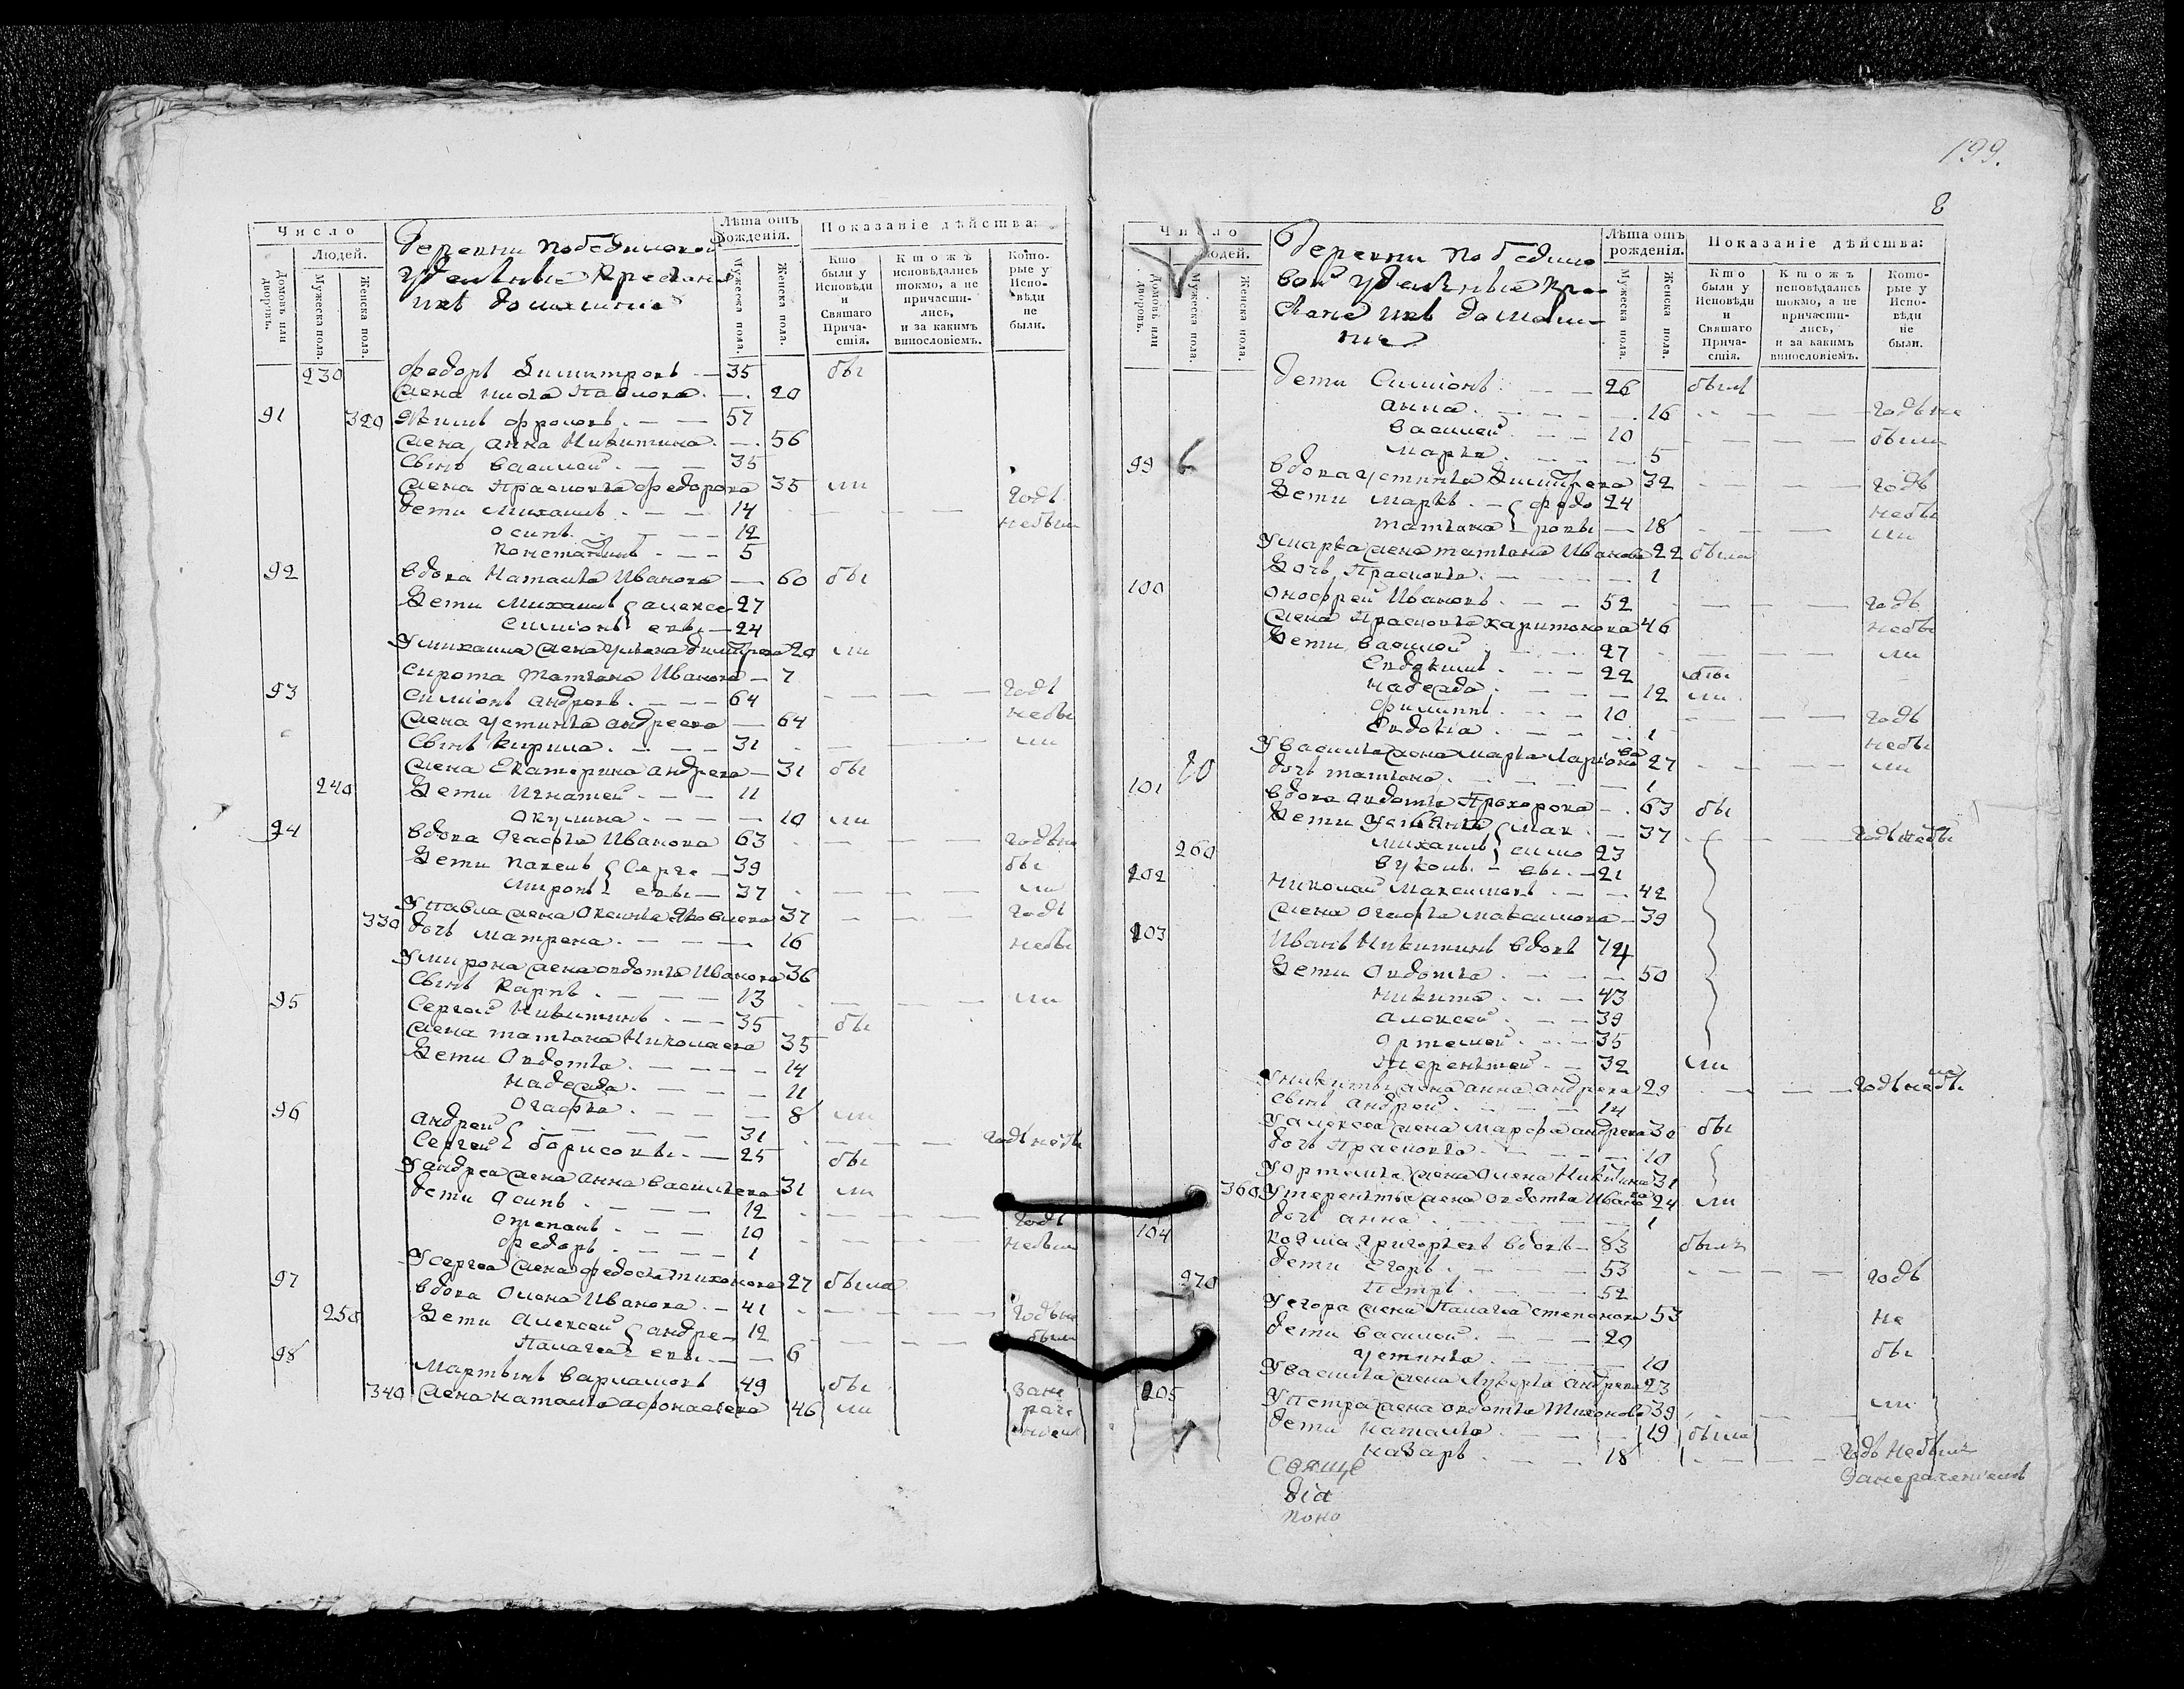 199.
8
Число
Людей.
Домовъ или дворовъ.
Мужеска пола.
Женска пола.
Деревни Победимовой
удельные крестьяне
ихъ домашние
Лѣта отъ рожденія.
Мужеска пола.
Женска пола.
Показаніе дѣйства:
Кто были у Исповѣди и Святаго Причастія.
Ктожъ исповѣдались токмо, а не причастились, и за какимъ винословіемъ.
Которые у Исповѣди не были.
230 Федоръ Димитровъ 35 бы
жена Павлова 20
91 320 Якимъ Фроловъ 57
жена Анна Никитина 56
сынъ Василей 35
жена Прасковья Федорова 35 ли
дети Михаилъ 14 годъ
Осипъ 12 небыли
Константинъ 5
92 вдова Наталья Иванова 60 бы
Дети Михаилъ Алексе 27
Симионъ евы 24
У Михаила жена Ульяна Димитрева 20 ли
сирота Татьяна Иванова 7
93 Симионъ Андровъ 64 годъ
жена Устинья Андреева 64 небы
сынъ Кирила 31 ли
жена Екатерина Андрева 31 бы
240 Дети Игнатей 11
Окулина 10 ли
94 вдова Огафья Иванова 63 годъ не
Дети Павелъ Серге 39 бы
Миронъ евы 37 ли
У Павла жена Оксинья Яковлева 37 годъ
330 дочь Матрена 16 небы
У Мирона жена Овдотья Иванова 36
сынъ Карпъ 13 ли
95 Сергей Никитинъ 35 бы
жена Татьяна Николаева 35
Дети Овдотья 14
Надежда 11
Огафья 8 ли
96 Андрей 31 годъ небы
Сергей Борисовы 25 бы
У Андрея жена Анна Васильева 31 ли
дети Осипъ 12
Степанъ 10 годъ
Федоръ 1 небыли
У Сергея жена Федосья Тихонова 27 была
97 вдова Олена Иванова 41 годъ не
250 Дети Алексей Андре 12 были
Палагея евы 6
98 Мартынъ Варламовъ 49 бы
340 жена Наталья Афонасьева 46 ли
Число
Людей.
Домовъ или дворовъ.
Мужеска пола.
Женска пола.
Деревни Победимо
вой удельные кре
стьяне ихъ домаш
ние
Лѣта отъ рожденія.
Мужеска пола.
Женска пола.
Показаніе дѣйства:
Кто были у Исповѣди и Святаго Причастія.
Ктожъ исповѣдались токмо, а не причастились, и за какимъ винословіемъ.
Которые у Исповѣди не были.
дети Симионъ 26 былъ
Анна 16 годъ не
Василей 10 были
Марья 5
99 вдова Устинья Димитрева 32 годъ
Дети Маркъ Федо 24 небы
Татьяна ровы 18 ли
У Марка жена Татьяна Иванова 22 была
Дочь Прасковья 1
100 Онофрей Ивановъ 52 годъ
жена Прасковья Харитонова 46 небы
Дети Василей 27 ли
Евдокимъ 22 бы
Надежда 12 ли
Филиппъ 10 годъ
Евдокія 1 небы
У Василья жена Марья Ларионова 27 ли
дочь Татьяна 1
101 вдова Овдотья Прохорова 63 бы
Дети Устинья Мак 37 годъ небы
260 Михаилъ симо 23
Вуколъ евы 21
102 Николай Максимовъ 42
жена Огафья Максимова 39
103 Иванъ Никитинъ вдовъ 74
Дети Овдотья 50
Никита 43
Алексей 39
Ортемей 35
Терентей 32 ли
У Никиты жена Анна Андрева 29 годъ небы
сынъ Андрей 14
У Алексея жена Марфа Андрева 30 бы
дочь Прасковья 10
У Ортемья жена Олена Никитина 31
360 У Терентья жена Овдотья Иванова 24 ли
дочь Анна 1
104 Козма Григорьевъ вдовъ 83 былъ
дети Егоръ 53 годъ
270 Петръ 52
У Егора жена Палагея Степанова 53 не
дети Василей 20
Устинья 10 бы
У Василья жена Лукерья Андрева 23
105 У Петра жена Овдотья Тихонова 39 ли
дети Наталья 19 была
Назаръ 18 годъ небылъ
Занерачениемъ
Свяще
Діа
Поно